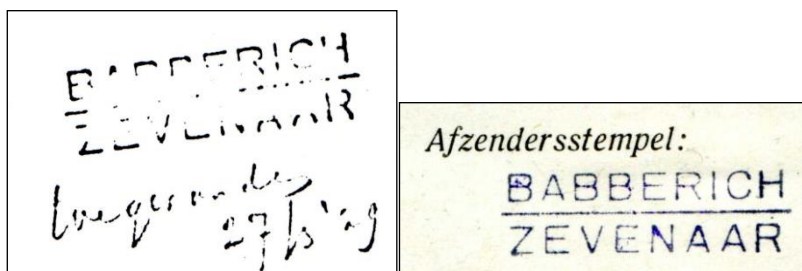 BABBERICH
ZEVENAAR
toegezonden
Afzendersstempel:
BABBERICH
ZEVENAAR